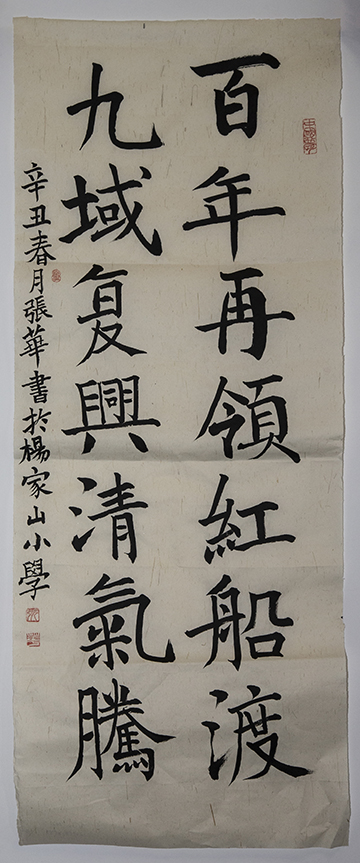 百年再領紅船渡
九域复興清氣騰
辛丑春月張華書於楊家山小學